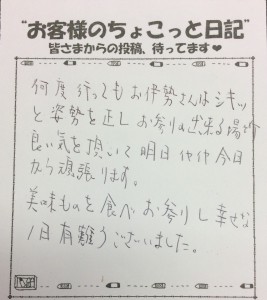 "お客様のちょこっと日記"
皆さまからの投稿、待ってます♥
何度行ってもお伊勢さんはシキッ
と姿勢を正しお参りの出来る場所
良い気を頂いて明日 今日
から頑張ります。
美味ものを食べお参りし幸せな
1日有難うございました。